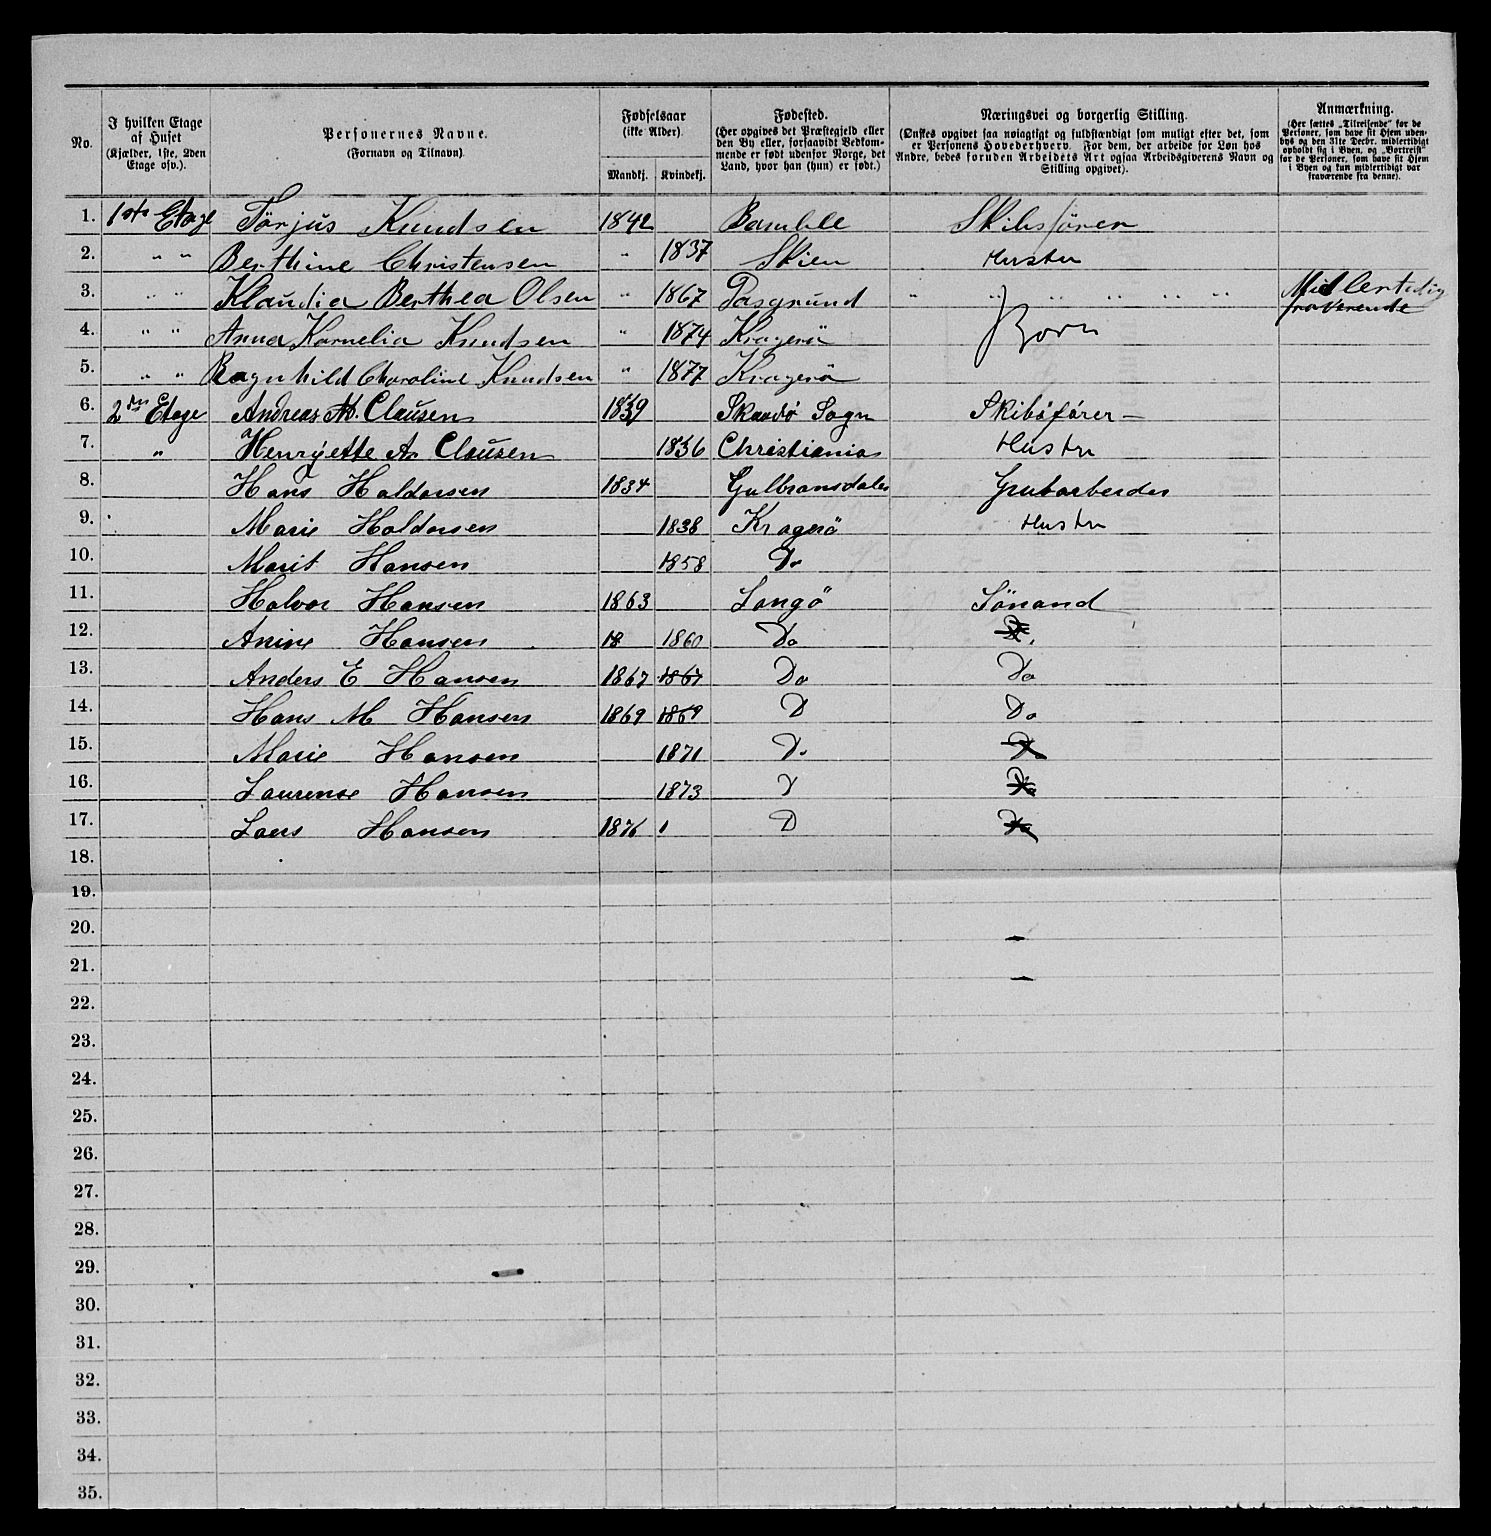 No.
I hvilken Etage af Huset (Kjælder, 1ste, 2den Etage osv.).
Personernes Navne. (Fornavn og Tilnavn)
Fødselsaar (ikke Alder).
Mandkj. Kvindekj.
Fødested. (Her opgives det Præstegjeld eller den By eller, forsaavidt Vedkommende er født udenfor Norge, det Land, hvor han (hun) er født.)
Næringsvei og borgerlig Stilling. (Ønskes opgivet saa nøiagtigt og fuldstændigt som muligt efter det, som er Personens Hovederhverv. For dem, der arbeide for Løn hos Andre, bedes foruden Arbeidets Art ogsaa Arbeidsgiverens Navn og Stilling opgivet).
Anmærkning. (Her sættes „Tilreisende“ for de Personer, som have sit Hjem udenbys og den 31te Decbr. midlertidigt opholdt sig i Byen, og „Bortreist“ for de Personer, som have sit Hjem i Byen og kun midlertidigt var fraværende fra denne).
1. 1ste Etage Tørjus Knudsen 1842 Bamble Skibsfører
2. " " Berthine Christensen " 1837 Skien Hustru
3. " " Klaudia Berthea Olsen " 1867 Posgrund " " " " " " " Midlertidig fraverende
4. " " Anna Kornelia Knudsen " 1874 Kragerö Børn
5. " " Ragnhild Charoline Knudsen " 1877 Kragerö
6. 2den Etage Andreas M. Clausen 1839 Skaadö Sogn Skibsfører
7. " Henryette A. Clausen 1836 Christiania Hustru
8. Hans Haldorsen 1834 Gulbransdalen Grubarbeder
9. Marie Haldorsen 1838 Kragerö Hustru
10. Marit Hansen 1858 Do
11. Halvor Hansen 1863 Langö Sömand
12. Anine Hansen 18 1860 Do Do.
13. Anders E Hansen 1867 1867 Do Do
14. Hans M Hansen 1869 1869 D Do
15. Marie Hansen 1871 Do Do
16. Laurense Hansen 1873 D Do
17. Lars Hansen 1876 D Do
18.
19.
20.
21.
22.
23.
24.
25.
26.
27.
28.
29.
30.
31.
32.
33.
34.
35.